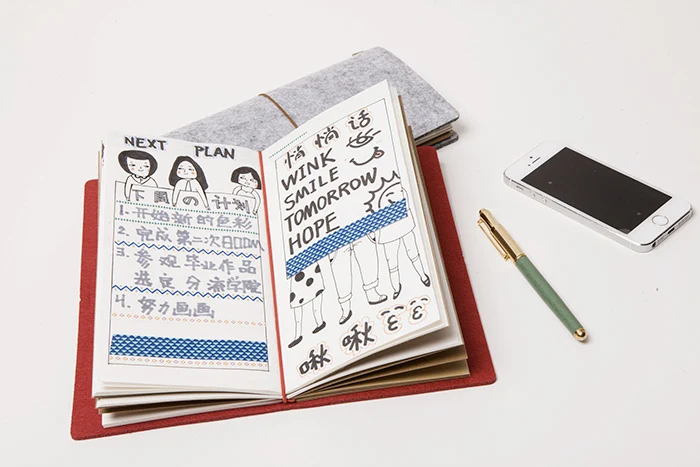 NEXT PLAN
下周の计划
1. 开始新的色彩
2. 完成第二次BOOM
3. 参观毕业作品
选定分流学院
4. 努力画画
悄悄话
WINK
SMILE
TOMORROW
HOPE
啾啾